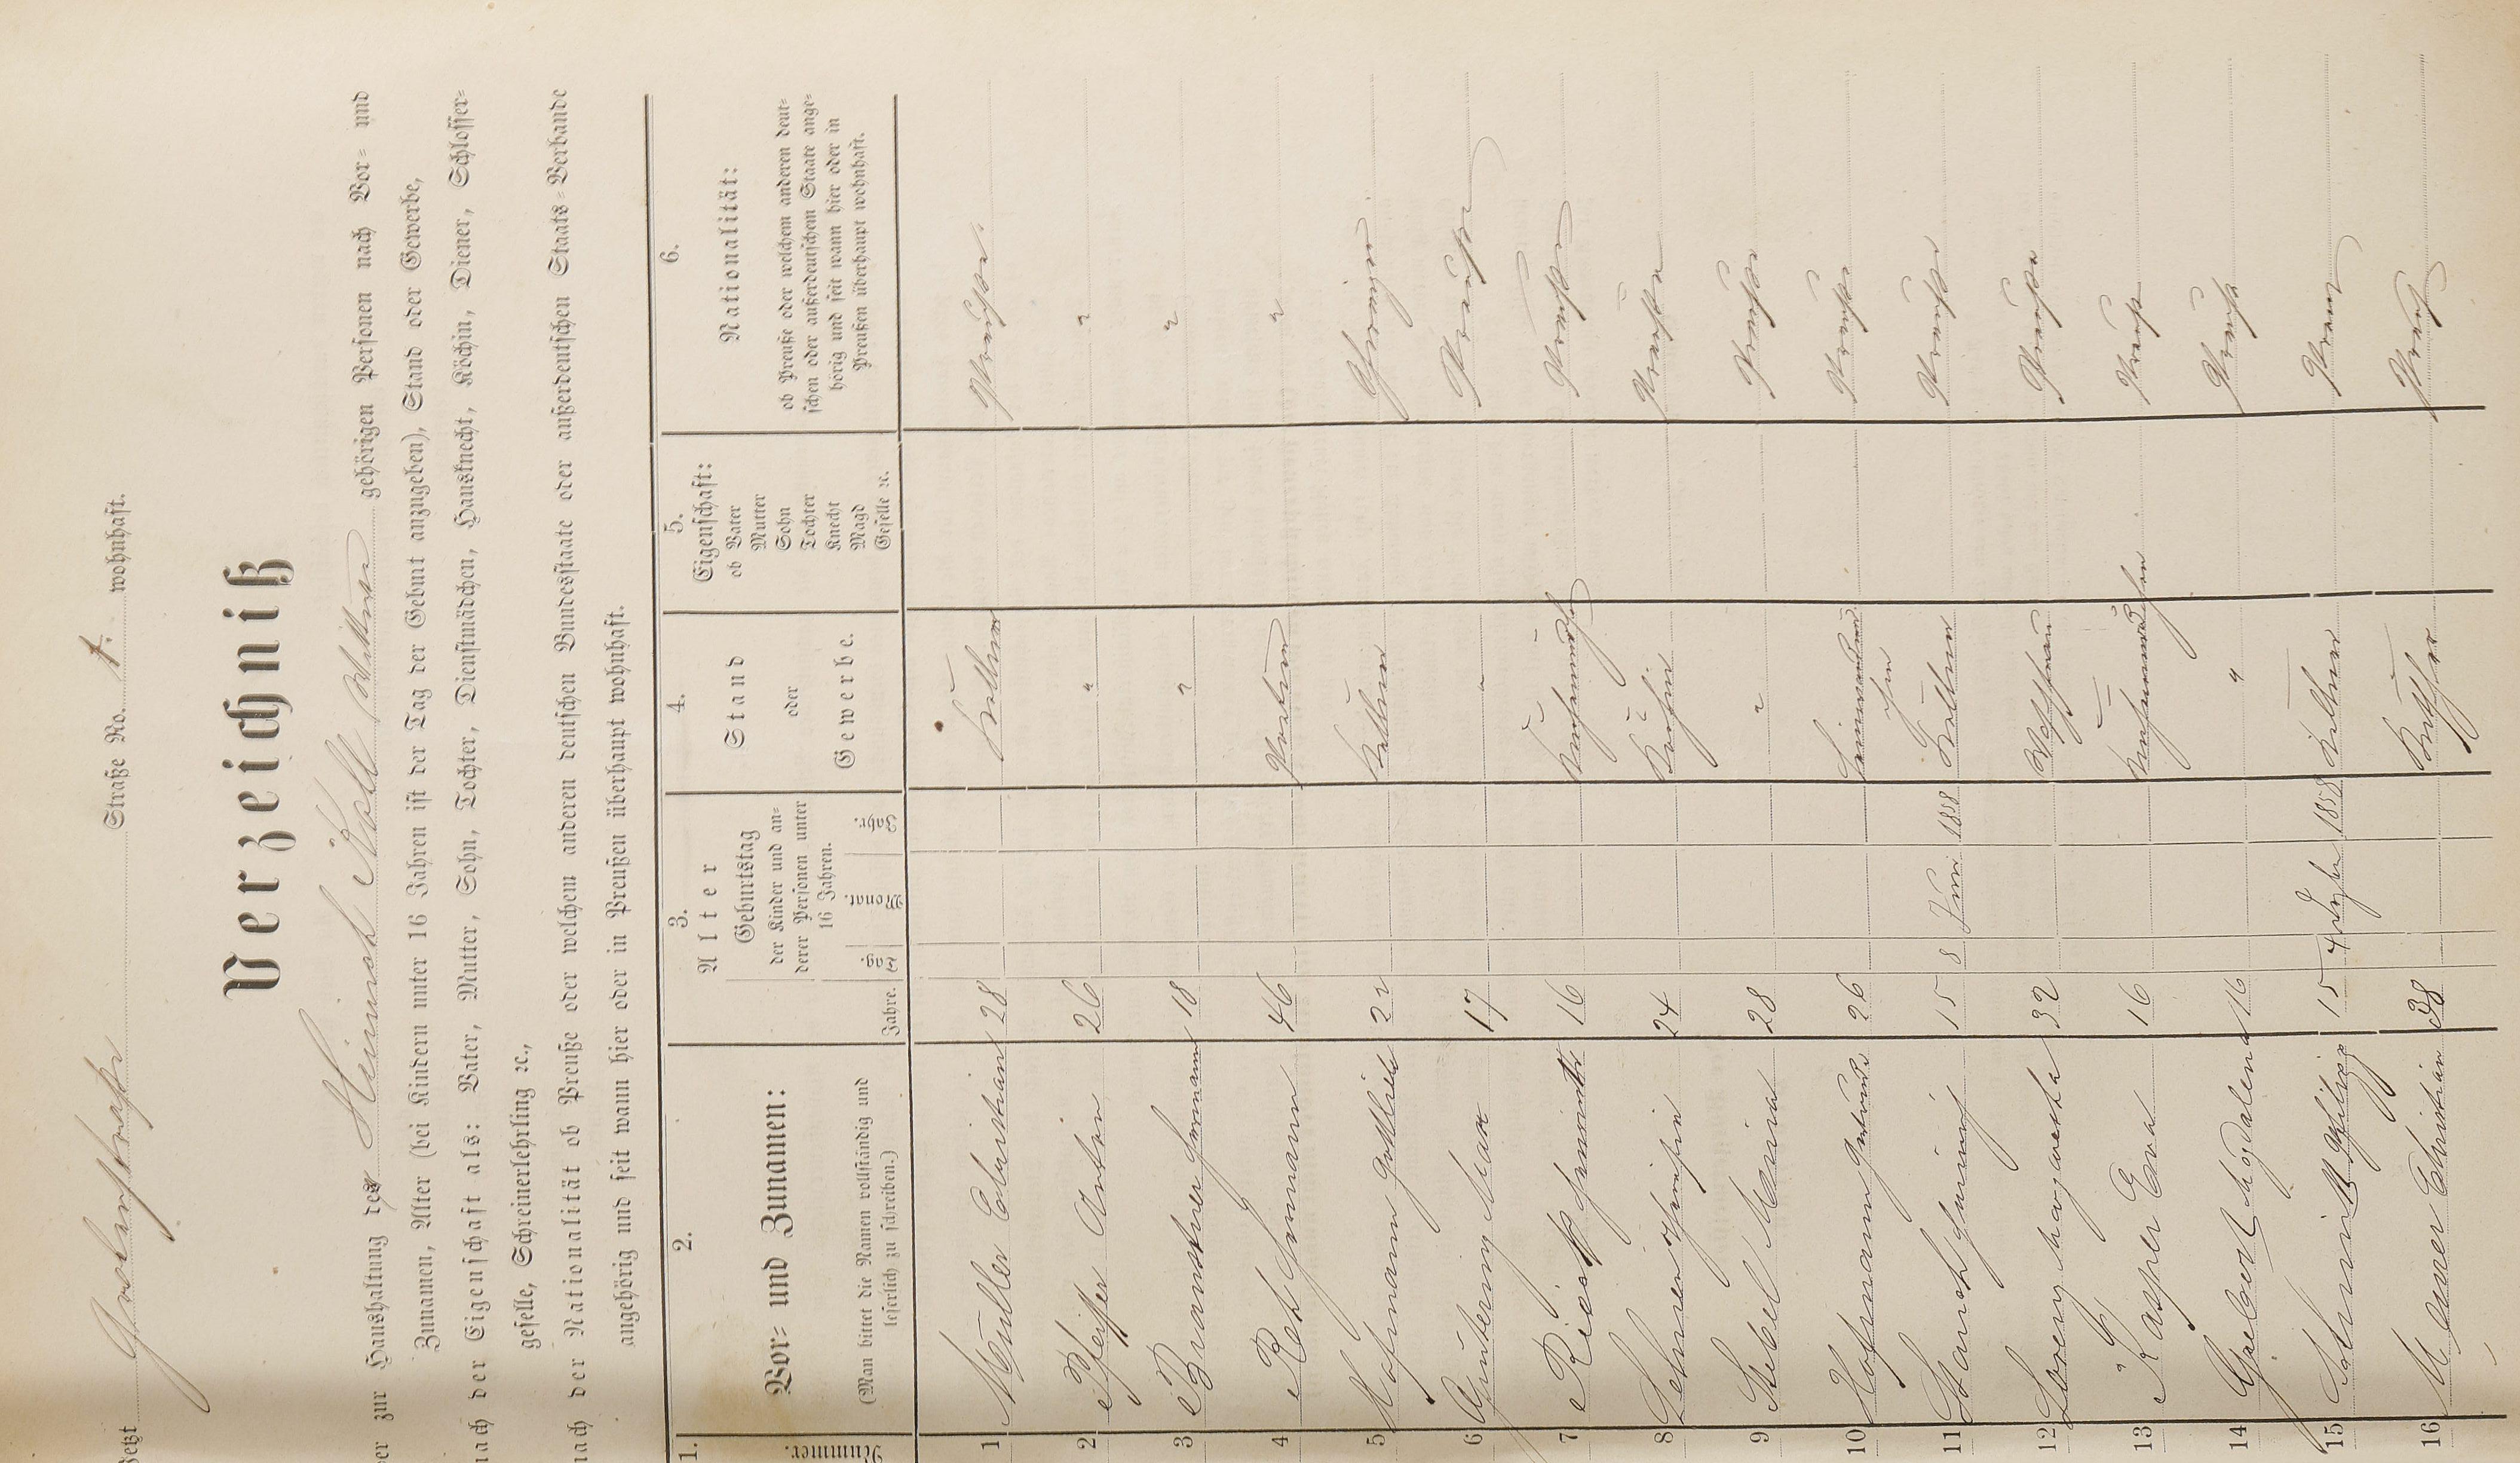 Jetzt Grabenstraße Straße No. 1. wohnhaft.
Verzeichniß
der zur Haushaltung des Heinrich Roll Wittwe gehörigen Personen nach Vor= und
Zunamen, Alter (bei Kindern unter 16 Jahren ist der Tag der Geburt anzugeben), Stand oder Gewerbe,
nach der Eigenschaft als: Vater, Mutter, Sohn, Tochter, Dienstmädchen, Hausknecht, Köchin, Diener, Schlosser=
geselle, Schreinerlehrling ꝛc.,
nach der Nationalität ob Preuße oder welchem anderen deutschen Bundesstaate oder außerdeutschen Staats=Verbande
angehörig und seit wann hier oder in Preußen überhaupt wohnhaft.
1.
Nummer.
2.
Vor= und Zunamen:
(Man bittet die Namen vollständig und
leserlich zu schreiben.)
3.
Alter
Jahre.
Geburtstag
der Kinder und an=
derer Personen unter
16 Jahren.
Tag. Monat. Jahr.
4.
Stand
oder
Gewerbe.
5.
Eigenschaft:
ob Vater
Mutter
Sohn
Tochter
Knecht
Magd
Geselle ꝛc.
6.
Nationalität:
ob Preuße oder welchem anderen deut=
schen oder außerdeutschen Staate ange=
hörig und seit wann hier oder in
Preußen überhaupt wohnhaft.
1 Müller Christian 28 Kellner Preuße.
2 Pfeiffer Anton 26 " "
3 Brandtner Hermann 18 " "
4 Roth Hermann 46 Portier "
5 Hofmann Gottlieb 22 Kellner Thüringen
6 Güntering Max 17 " Preuße
7 16 Preuße
8 Lehnen Theresia 24 Köchin Preuße
9 Stebel Maria 28 " Preuße
10 Hofmann Gertrude 26 Preuße
11 Heinrich 15 8 Juni 1858 Kellner Preuße
12 Lorenz Margaretha 32 Waschfrau Preuße
13 Kasper Eva 16 Küchenmädchen Preuße
14 Geilbert Magdalena 16 " Preuße
15 Philipp 15 4 1858 Kellner Preuße
16 Meurer Christian 38 Kutscher Preuße